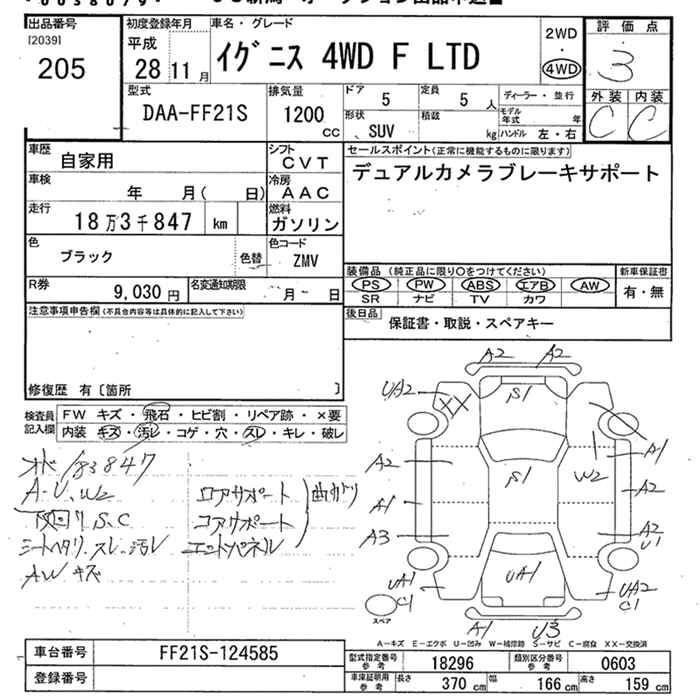 出品番号
[20391
205
初度登録年月
平成
28 11 月
車名・グレード
イグニス 4WD F LTD
2WD
・
4WD
評価点
3
外装 内装
C C
型式
DAA-FF21S
排気量
1200
CC
ドア
5
定員
5 人
ディーラー・並行
形状
SUV
積載
kg
モデル年式
年
ハンドル 左・右
車歴
自家用
シフト
CVT
車検
年 月( 日)
冷房
AAC
走行
18万3千847 km
燃料
ガソリン
色
ブラック
色替
色コード
ZMV
R券
9,030 円
名変通知期限
月 日
セールスポイント(正常に機能するものに限ります)
デュアルカメラブレーキサポート
装備品 (純正品に限り○をつけてください)
PS PW ABS エアB AW
SR ナビ TV カワ
新車保証書
有・無
後日品
保証書・取説・スペアキー
注意事項申告欄(不具合内容等は具体的に記入して下さい)
修復歴 有〔箇所 〕
検査員
記入欄
FW キズ・飛石・ヒビ割・リペア跡・×要
内装 キズ・汚レ・コゲ・穴・スレ・キレ・破レ
183847
A-U、W2
下回り S、C
シートヘタリ、スレ、汚レ
AWキズ
ロアサポート
コアサポート
エンドパネル
曲がり
A2 A2
UA2 XX S1
A1
A2 S1 W2
A2
A1
A3 A2
U1
UA1
C1
UA1
UA2
C1
スペア
A1 U3
A-キズ E-エクボ U-凹み W-補修跡 S-サビ C-腐食 XX-交換済
車台番号
FF21S-124585
登録番号
型式指定番号
参考
18296
類別区分番号
参考
0603
車庫証明用
参考
長さ 370 cm 幅 166 cm 高さ 159 cm